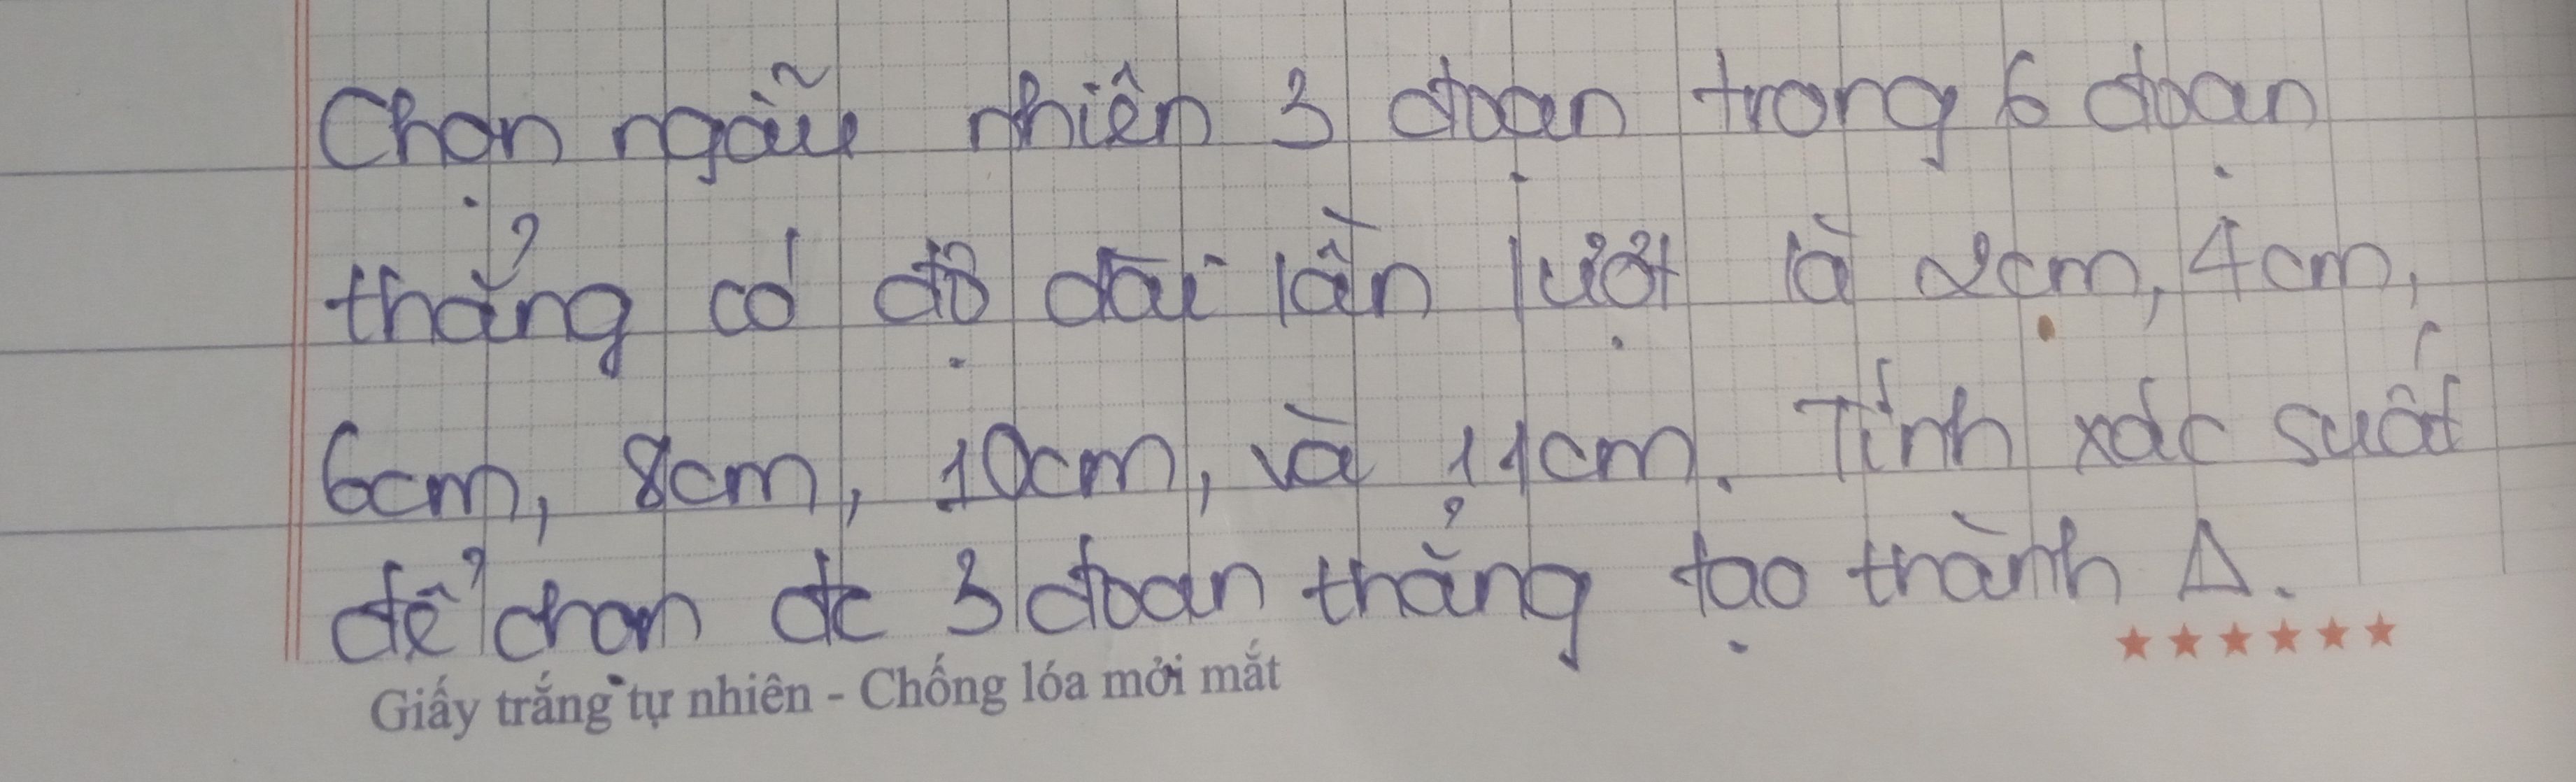 Chọn ngẫu nhiên 3 đoạn trong 6 đoạn
thẳng có độ dài lần lượt là 2cm, 4cm,
6cm, 8cm, 10cm, và 11cm. Tính xác suất
để chọn đc 3 đoạn thẳng tạo thành Δ.
★★★★★★
Giấy trắng tự nhiên - Chống lóa mỏi mắt